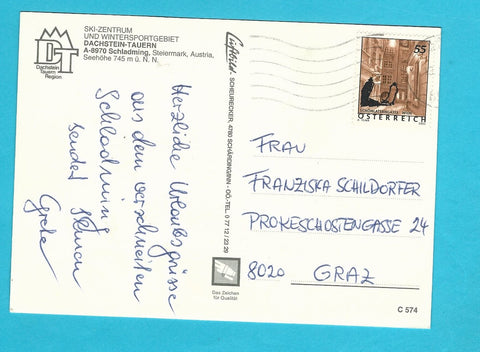 SKI-ZENTRUM
UND WINTERSPORTGEBIET
DACHSTEIN-TAUERN
A-8970 Schladming, Steiermark, Austria,
Seehöhe 745 m ü. N. N.
DT
Dachstein
Tauern
Region
Herzliche Urlaubsgrüsse
aus dem verschneiten
Schladming
sendet Ihnen
Grete
Luftbild SCHEURECKER, 4780 SCHÄRDING/INN - OÖ - TEL. 0 77 12 / 23 29
Das Zeichen
für Qualität
55
ÖSTERREICH
FRAU
FRANZISKA SCHILDORFER
PROKESCHOSTENGASSE 24
8020 GRAZ
C 574